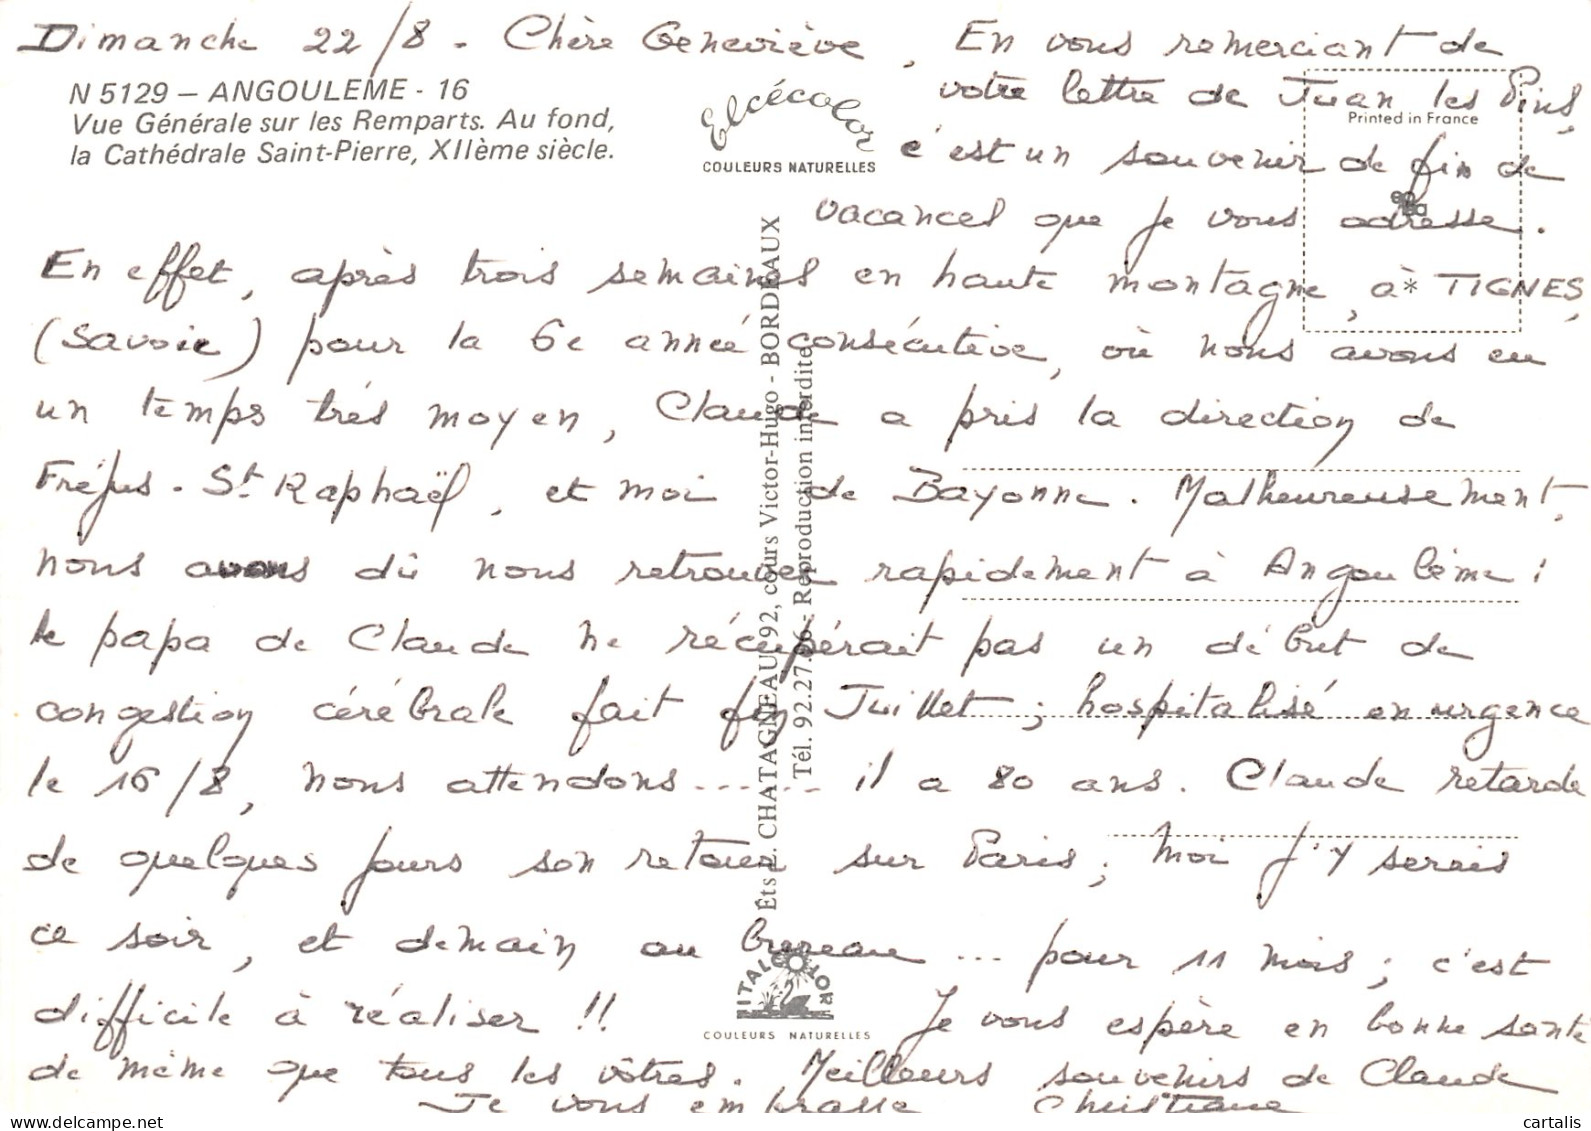 Dimanche 22/8 - Chère Geneviève, En vous remerciant de
votre lettre de Juan les Pins,
c'est un souvenir de fin de
vacances que je vous adresse.
N 5129 – ANGOULEME - 16
Vue Générale sur les Remparts. Au fond,
la Cathédrale Saint-Pierre, XIIème siècle.
Elcécolor
COULEURS NATURELLES
Printed in France
En effet, après trois semaines en haute montagne, à* TIGNES,
(Savoie) pour la 6e année consécutive, où nous avons eu
un temps très moyen, Claude a pris la direction de
Fréjus - St Raphaël, et moi de Bayonne. Malheureusement,
nous avons dû nous retrouver rapidement à Angoulême :
le papa de Claude ne récupérait pas un début de
congestion cérébrale fait fin Juillet ; hospitalisé en urgence
le 16/8, nous attendons ...... il a 80 ans. Claude retarde
de quelques jours son retour sur Paris ; moi j'y serais
ce soir, et demain au bureau ... pour 11 mois ; c'est
difficile à réaliser !! Je vous espère en bonne santé
de même que tous les vôtres. Meilleurs souvenirs de Claude
Je vous embrasse Christiane
Éts C. CHATAGNEAU 92, cours Victor-Hugo - BORDEAUX
Tél. 92.27.06 - Reproduction interdite
ITALCOLOR
COULEURS NATURELLES
delcampe.net
cartalis